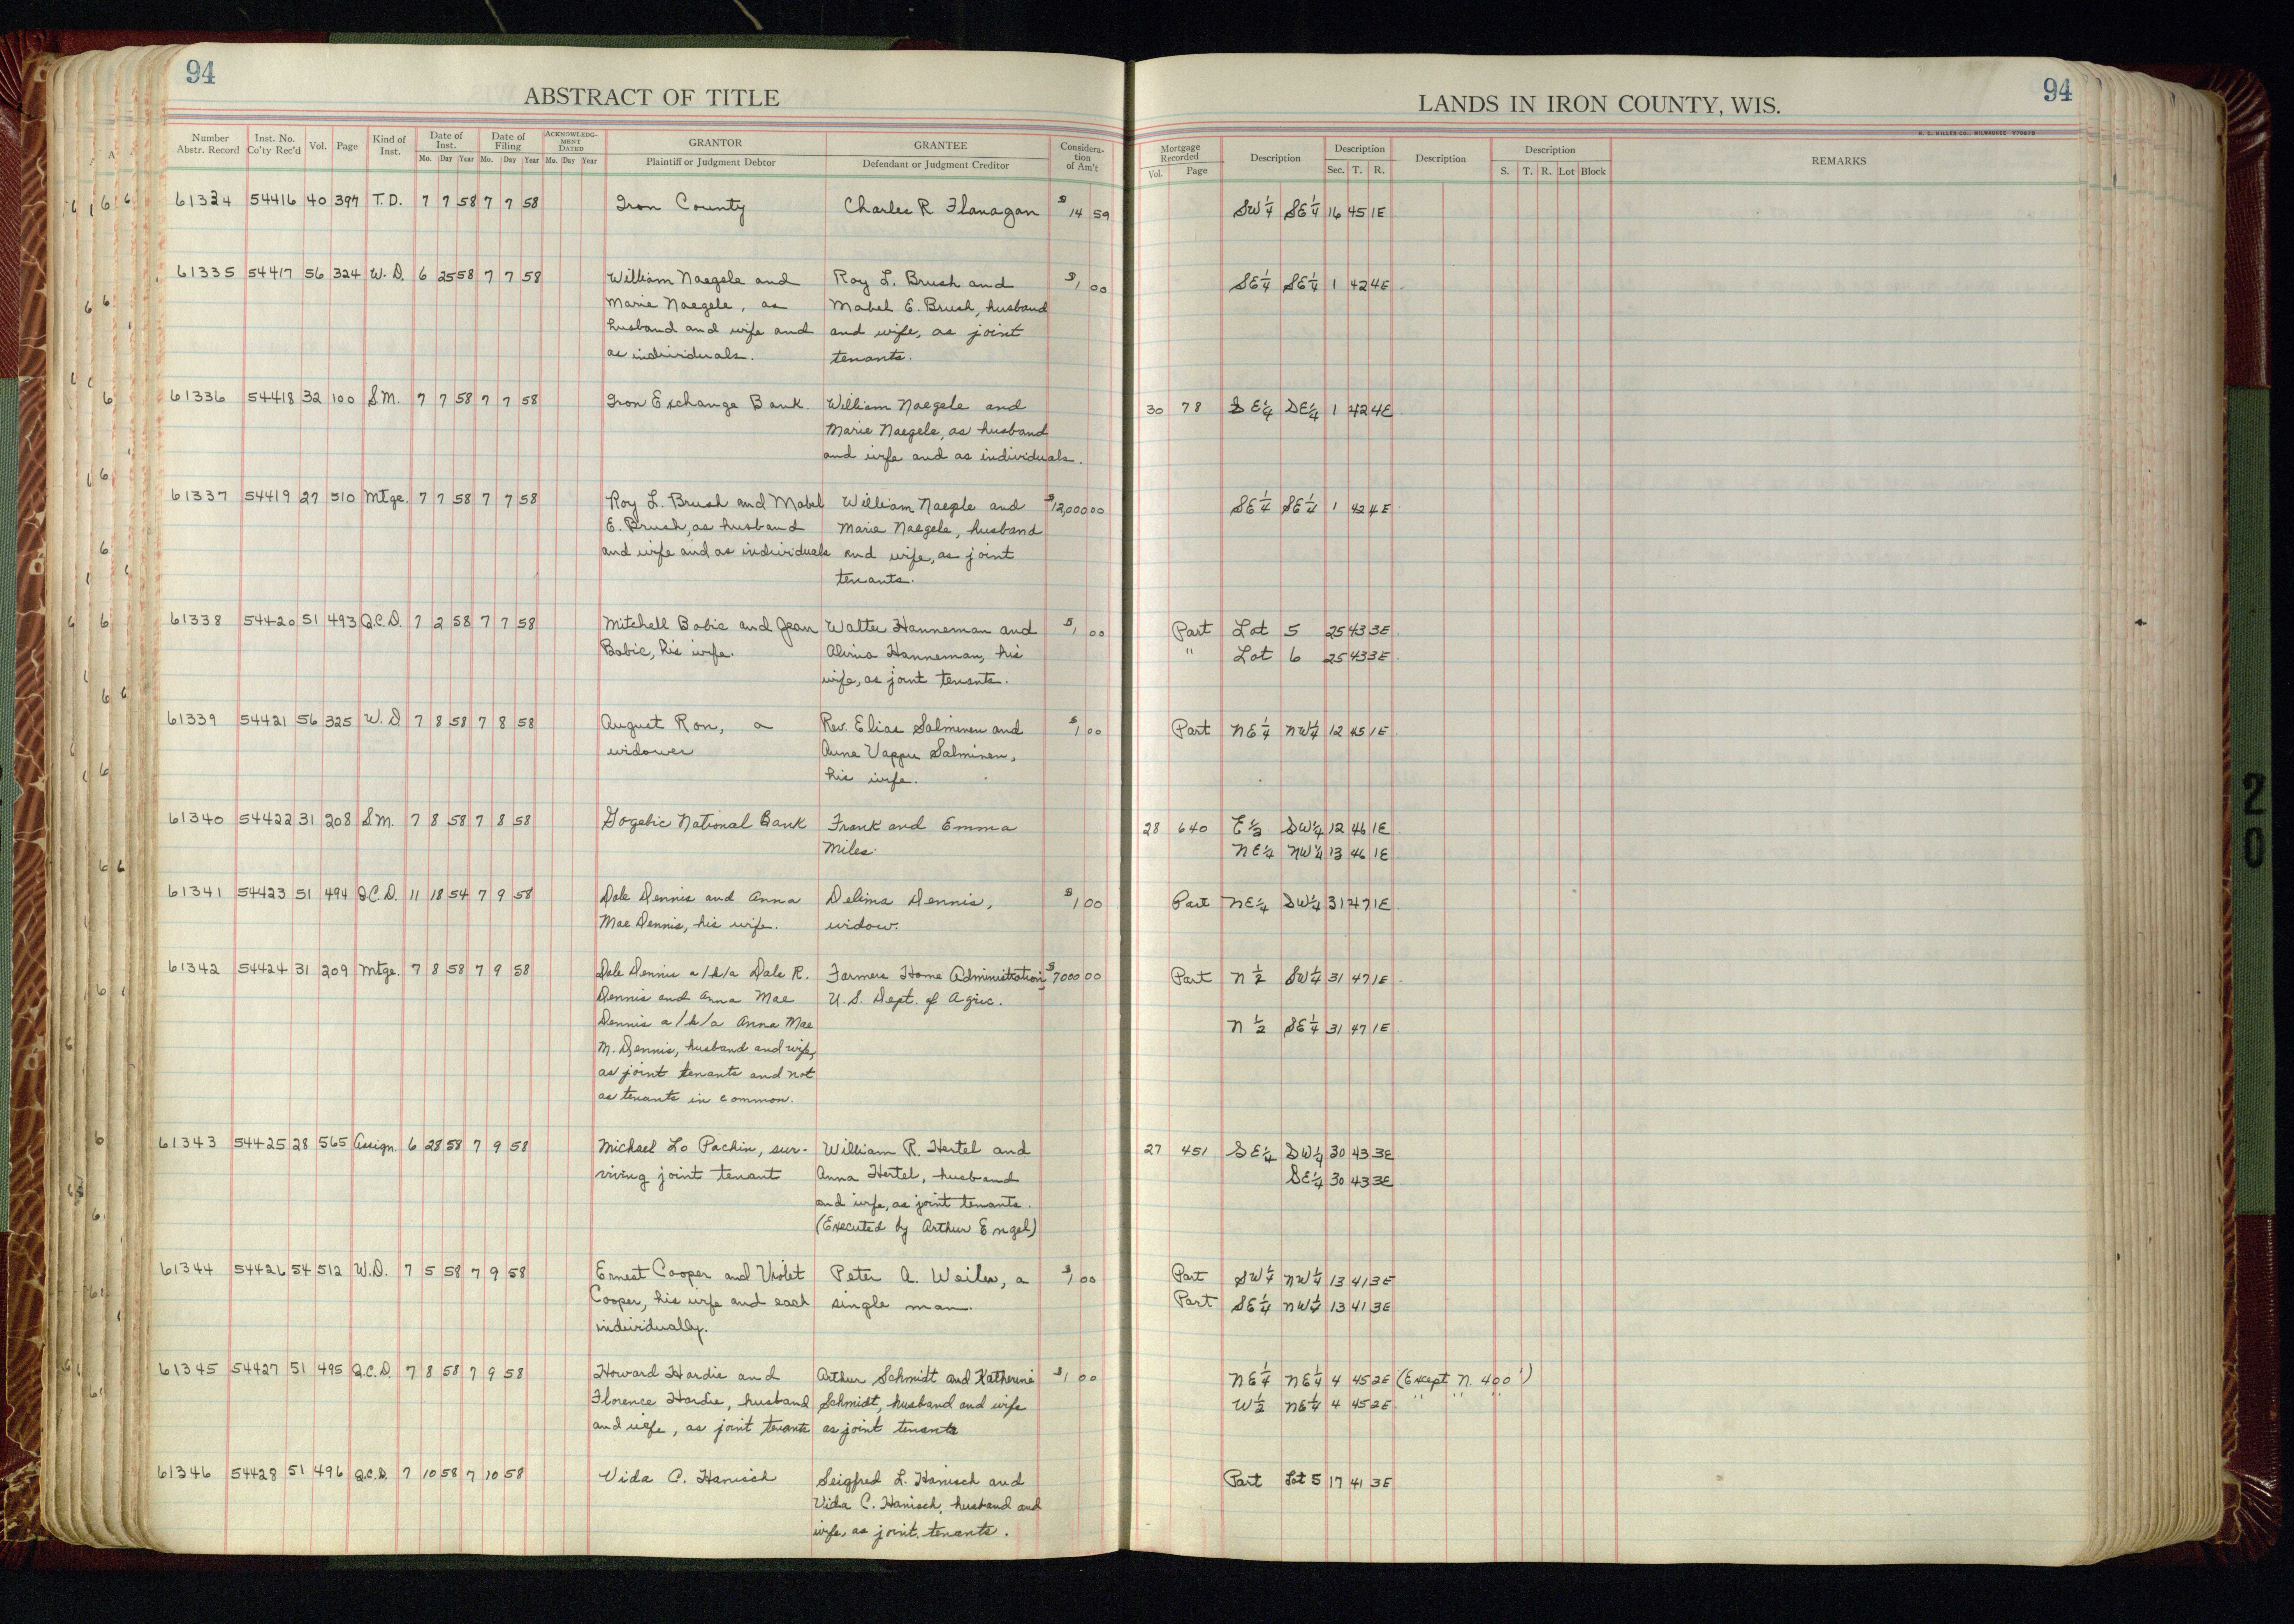 94
ABSTRACT OF TITLE
LANDS IN IRON COUNTY, WIS.
94
H. C. MILLER CO., MILWAUKEE
Number Abstr. Record | Inst. No. Co'ty Rec'd | Vol. | Page | Kind of Inst. | Date of Inst. Mo. Day Year | Date of Filing Mo. Day Year | ACKNOWLEDGMENT DATED Mo. Day Year | GRANTOR Plaintiff or Judgment Debtor | GRANTEE Defendant or Judgment Creditor | Consideration of Am't | Mortgage Recorded Vol. Page | Description | Description Sec. T. R. | Description | Description S. T. R. Lot Block | REMARKS
61334 54416 40 397 T.D. 7 7 58 7 7 58 Iron County Charles R Flanagan $14 59 SW¼ SE¼ 16 45 1E
61335 54417 56 324 W.D. 6 25 58 7 7 58 William Naegele and Roy L. Brush and $1 00 SE¼ SE¼ 1 42 4E
Marie Naegele, as Mabel E. Brush, husband
husband and wife and and wife, as joint
as individuals. tenants.
61336 54418 32 100 S.M. 7 7 58 7 7 58 Iron Exchange Bank. William Naegele and 30 78 SE¼ SE¼ 1 42 4E
Marie Naegele, as husband
and wife and as individuals.
61337 54419 27 510 Mtge. 7 7 58 7 7 58 Roy L. Brush and Mabel William Naegele and $12,000 00 SE¼ SE¼ 1 42 4E
E. Brush, as husband Marie Naegele, husband
and wife and as individuals and wife, as joint
tenants.
61338 54420 51 493 Q.C.D. 7 2 58 7 7 58 Mitchell Babic and Jean Walter Hanneman and $1 00 Part Lot 5 25 43 3E
Babic, his wife. Alvina Hanneman, his " Lot 6 25 43 3E
wife, as joint tenants.
61339 54421 56 325 W.D 7 8 58 7 8 58 August Ron, a Rev. Elias Salminen and $1 00 Part NE¼ NW¼ 12 45 1E
widower Aune Vappu Salminen,
his wife.
61340 54422 31 208 S.M. 7 8 58 7 8 58 Gogebic National Bank Frank and Emma 28 640 E½ SW¼ 12 46 1E
Miles. NE¼ NW¼ 13 46 1E
61341 54423 51 494 Q.C.D. 11 18 54 7 9 58 Dale Dennis and Anna Delima Dennis, $1 00 Part NE¼ SW¼ 31 47 1E
Mae Dennis, his wife. widow.
61342 54424 31 209 Mtge. 7 8 58 7 9 58 Dale Dennis a/k/a Dale R. Farmers Home Administration, $7000 00 Part N½ SW¼ 31 47 1E
Dennis and Anna Mae U.S. Dept. of Agric.
Dennis a/k/a Anna Mae N½ SE¼ 31 47 1E
M. Dennis, husband and wife,
as joint tenants and not
as tenants in common.
61343 54425 28 565 Assign. 6 28 58 7 9 58 Michael Lo Pachin, sur- William R. Hertel and 27 451 SE¼ SW¼ 30 43 3E
viving joint tenant Anna Hertel, husband SE¼ 30 43 3E
and wife, as joint tenants.
(Executed by Arthur Engel)
61344 54426 54 512 W.D. 7 5 58 7 9 58 Ernest Cooper and Violet Peter A. Weiler, a $1 00 Part SW¼ NW¼ 13 41 3E
Cooper, his wife and each single man. Part SE¼ NW¼ 13 41 3E
individually.
61345 54427 51 495 Q.C.D. 7 8 58 7 9 58 Howard Hardie and Arthur Schmidt and Katherine $1 00 NE¼ NE¼ 4 45 2E (Except N. 400')
Florence Hardie, husband Schmidt, husband and wife W½ NE¼ 4 45 2E " " "
and wife, as joint tenants as joint tenants
61346 54428 51 496 Q.C.D. 7 10 58 7 10 58 Vida C. Hanisch Seigfred L. Hanisch and Part Lot 5 17 41 3E
Vida C. Hanisch, husband and
wife, as joint tenants.
20